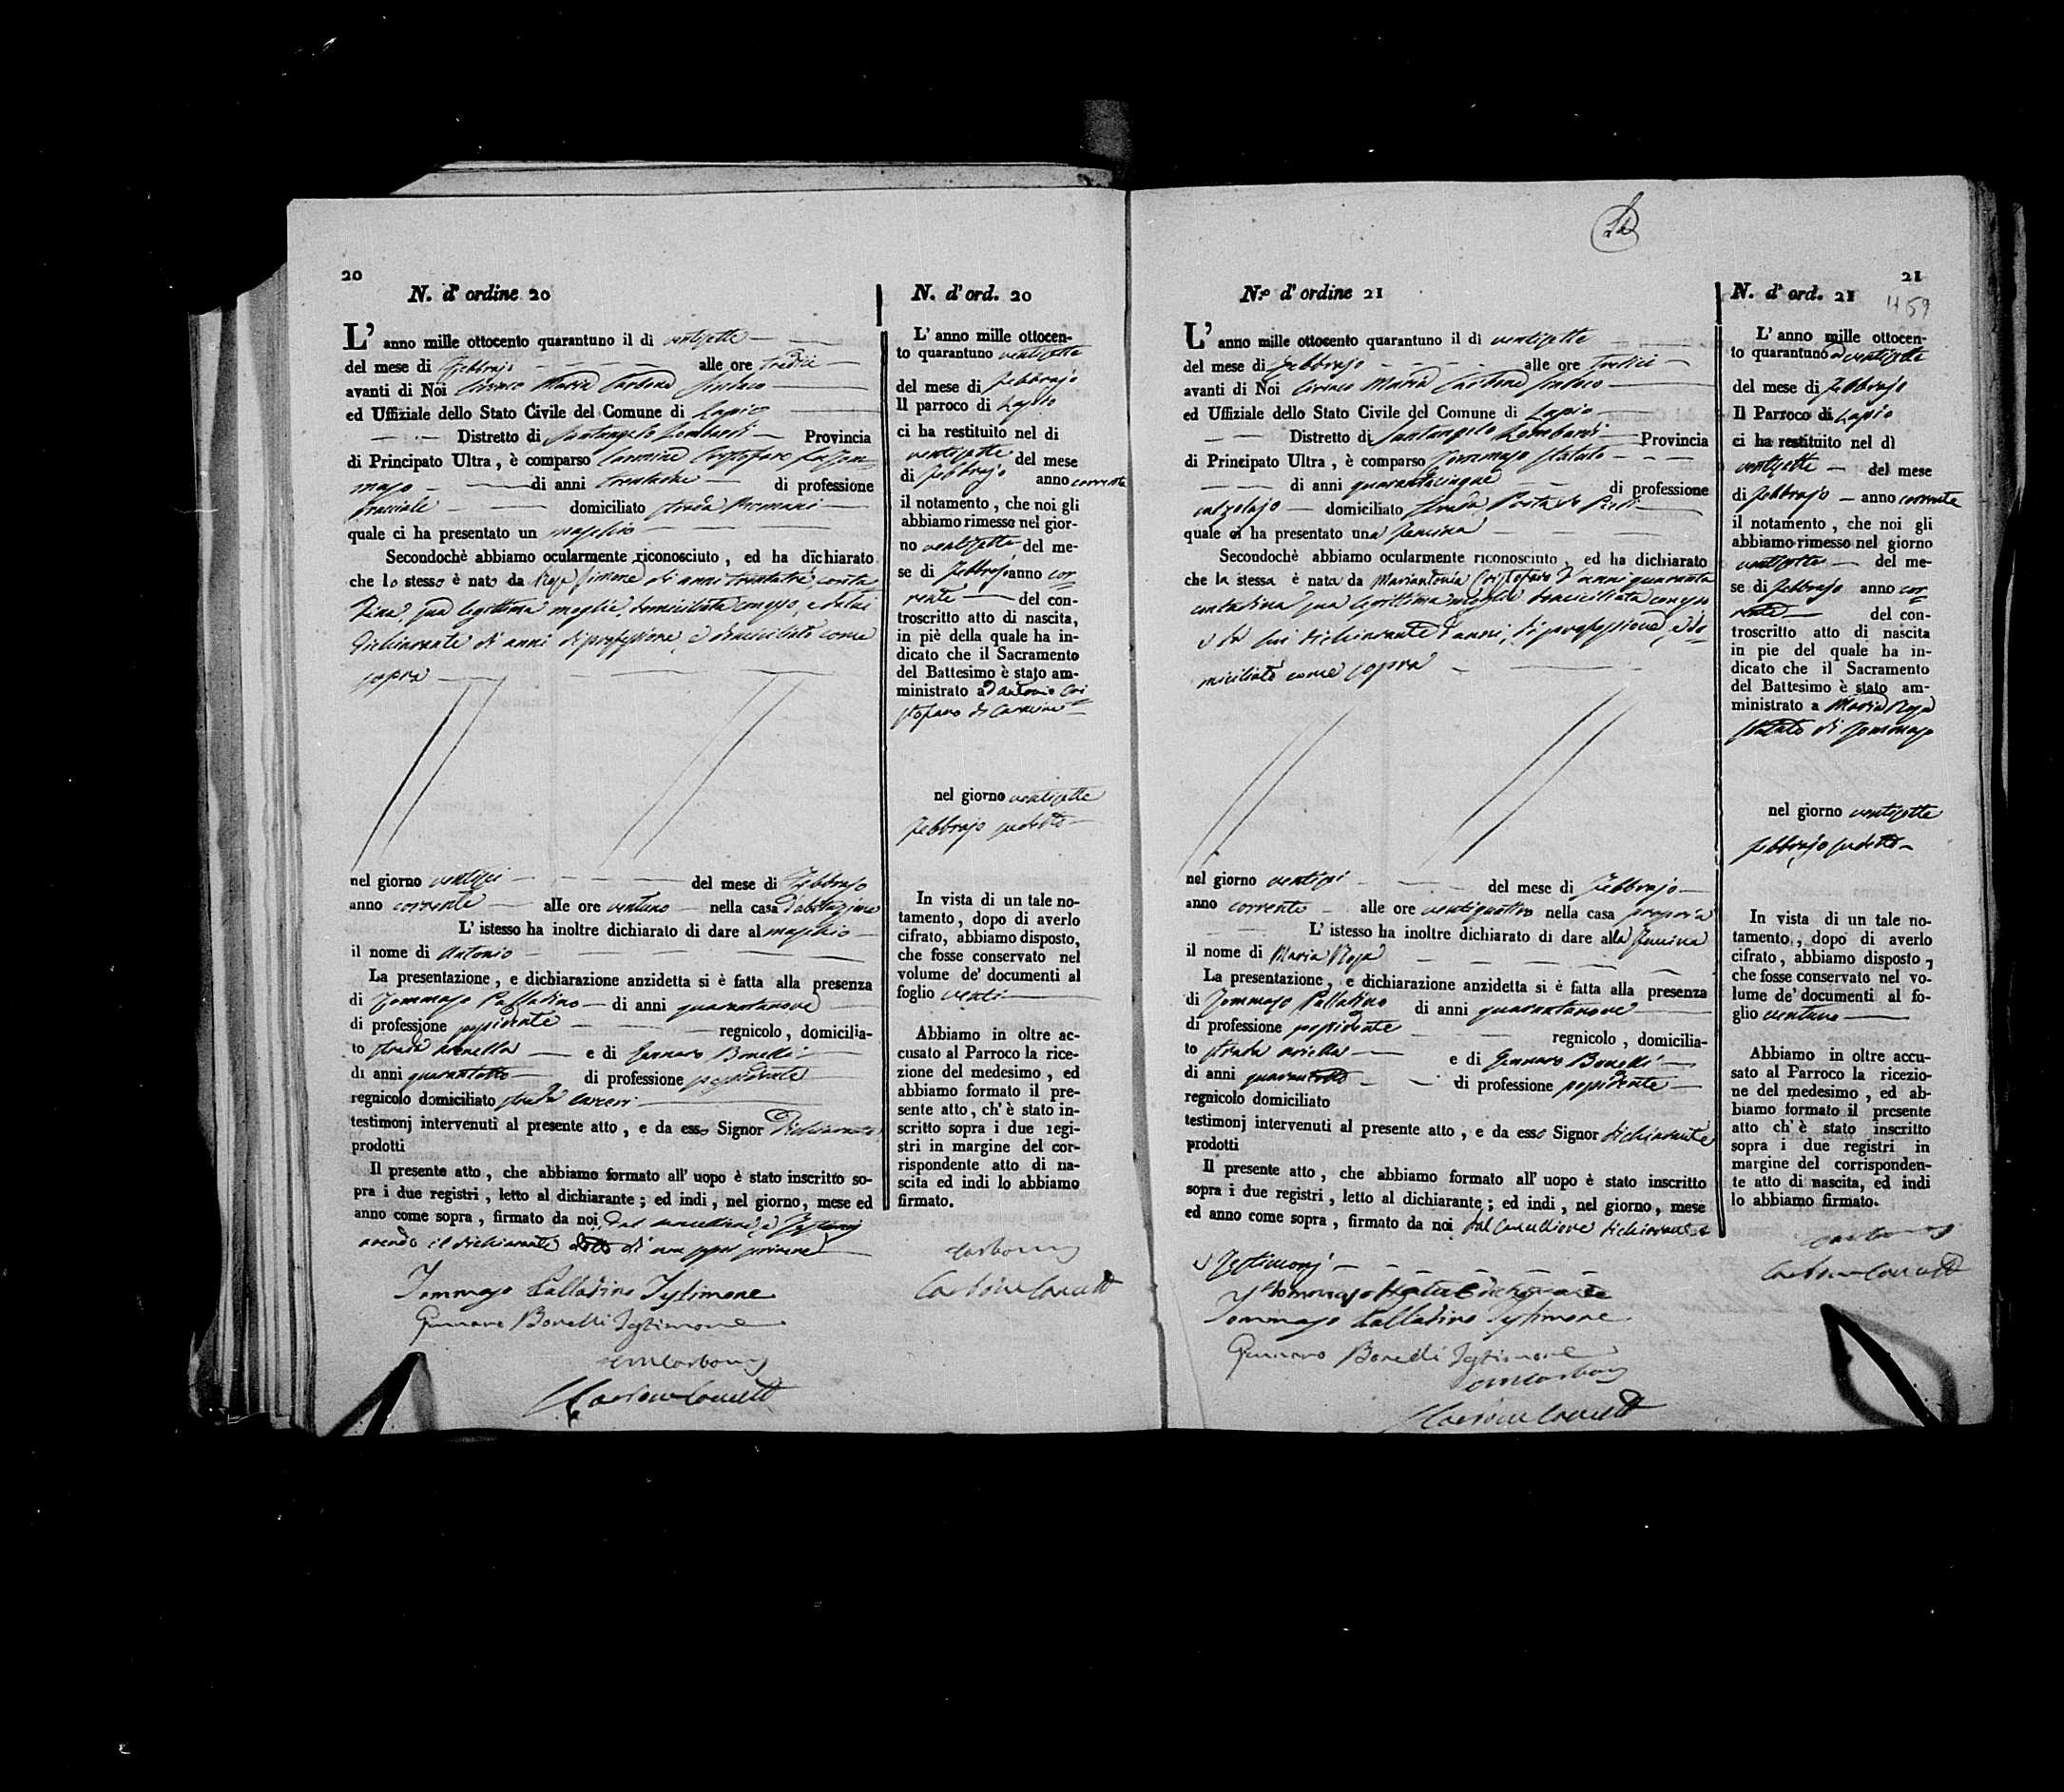 20
N. d' ordine 20
L' anno mille ottocento quarantuno il di ventisette
del mese di Febbrajo alle ore tredici
avanti di Noi Ciriaco Maria Carbone Sindaco
ed Uffiziale dello Stato Civile del Comune di Lapio
Distretto di Santangelo Lombardi Provincia
di Principato Ultra , è comparso Carmine Cristofaro fu Tom-
maso di anni di professione
bracciale domiciliato strada
quale ci ha presentato un maschio
Secondochè abbiamo ocularmente riconosciuto , ed ha dichiarato
che lo stesso è nato da Rosa Simone di anni trentatré, conta-
dina, sua legittima moglie, domiciliata con esso, e da lui
dichiarante di anni di professione, e domiciliato come
sopra
nel giorno ventisei del mese di Febbrajo
anno corrente alle ore ventuno nella casa d'abitazione
L' istesso ha inoltre dichiarato di dare al maschio
il nome di Antonio
La presentazione , e dichiarazione anzidetta si è fatta alla presenza
di Tommaso Palladino di anni quarantanove
di professione possidente regnicolo , domicilia-
to strada e di Gennaro Bonelli
di anni quarantotto di professione possidente
regnicolo domiciliato strada Carceri
testimonj intervenuti al presente atto , e da esso Signor dichiarante
prodotti
Il presente atto , che abbiamo formato all' uopo è stato inscritto so-
pra i due registri , letto al dichiarante ; ed indi , nel giorno , mese ed
anno come sopra , firmato da noi dal cancelliere, e Testimonj
avendo il dichiarante detto di non saper scrivere
Tommaso Palladino Testimone
Gennaro Bonelli Testimone
CMCarbone
Carbone Cancell
N. d' ord. 20
L' anno mille ottocen-
to quarantuno ventisette
del mese di Febbrajo
Il parroco di Lapio
ci ha restituito nel di
ventisette del mese
di Febbrajo anno corrente
il notamento , che noi gli
abbiamo rimesso nel gior-
no ventisette del me-
se di Febbrajo anno cor-
rente del con-
troscritto atto di nascita,
in piè della quale ha in-
dicato che il Sacramento
del Battesimo è stato am-
ministrato ad Antonio Cri
stofaro di Carmine
nel giorno ventisette
Febbrajo sudetto
In vista di un tale no-
tamento, dopo di averlo
cifrato, abbiamo disposto,
che fosse conservato nel
volume de' documenti al
foglio venti
Abbiamo in oltre ac-
cusato al Parroco la rice-
zione del medesimo , ed
abbiamo formato il pre-
sente atto, ch' è stato in-
scritto sopra i due regi-
stri in margine del cor-
rispondente atto di na-
scita ed indi lo abbiamo
firmato.
Carbone
Carbone Cancell
21
N.o d' ordine 21
L' anno mille ottocento quarantuno il di ventisette
del mese di Febbrajo alle ore tredici
avanti di Noi Ciriaco Maria Carbone Sindaco
ed Uffiziale dello Stato Civile del Comune di Lapio
Distretto di Santangelo Lombardi Provincia
di Principato Ultra , è comparso Tommaso Statuto
di anni quarantacinque di professione
calzolajo domiciliato strada Porta di
quale ci ha presentato una femina
Secondochè abbiamo ocularmente riconosciuto , ed ha dichiarato
che la stessa è nata da Mariantonia Cristofaro d'anni quaranta
contadina sua legittima moglie domiciliata con esso
e da lui dichiarante d'anni, di professione, e do-
miciliato come sopra
nel giorno ventisei del mese di Febbrajo
anno corrente alle ore ventiquattro nella casa propria
L' istesso ha inoltre dichiarato di dare alla femina
il nome di Maria Rosa
La presentazione , e dichiarazione anzidetta si è fatta alla presenza
di Tommaso Palladino di anni quarantanove
di professione possidente regnicolo , domicilia-
to strada e di Gennaro Bonelli
di anni quarantotto di professione possidente
regnicolo domiciliato
testimonj intervenuti al presente atto , e da esso Signor dichiarante
prodotti
Il presente atto , che abbiamo formato all' uopo è stato inscritto
sopra i due registri , letto al dichiarante ; ed indi , nel giorno , mese
ed anno come sopra , firmato da noi dal Cancelliere dichiarante
e Testimonj
Tommaso Statuto dichiarante
Tommaso Palladino Testimone
Gennaro Bonelli Testimone
CMCarbone
Carbone Cancell
N. d' ord. 21
1159
L' anno mille ottocen-
to quarantuno ventisette
del mese di Febbrajo
Il Parroco di Lapio
ci ha restituito nel dì
ventisette del mese
di Febbrajo anno corrente
il notamento , che noi gli
abbiamo rimesso nel giorno
ventisette del me-
se di Febbrajo anno cor-
rente del con-
troscritto atto di nascita
in pie del quale ha in-
dicato che il Sacramento
del Battesimo è stato am-
ministrato a Maria Rosa
Statuto di Tommaso
nel giorno ventisette
Febbrajo sudetto
In vista di un tale no-
tamento , dopo di averlo
cifrato , abbiamo disposto ,
che fosse conservato nel vo-
lume de' documenti al fo-
glio ventuno
Abbiamo in oltre accu-
sato al Parroco la ricezio-
ne del medesimo , ed ab-
biamo formato il presente
atto ch' è stato inscritto
sopra i due registri in
margine del corrisponden-
te atto di nascita, ed indi
lo abbiamo firmato.
Carbone
Carbone Cancell